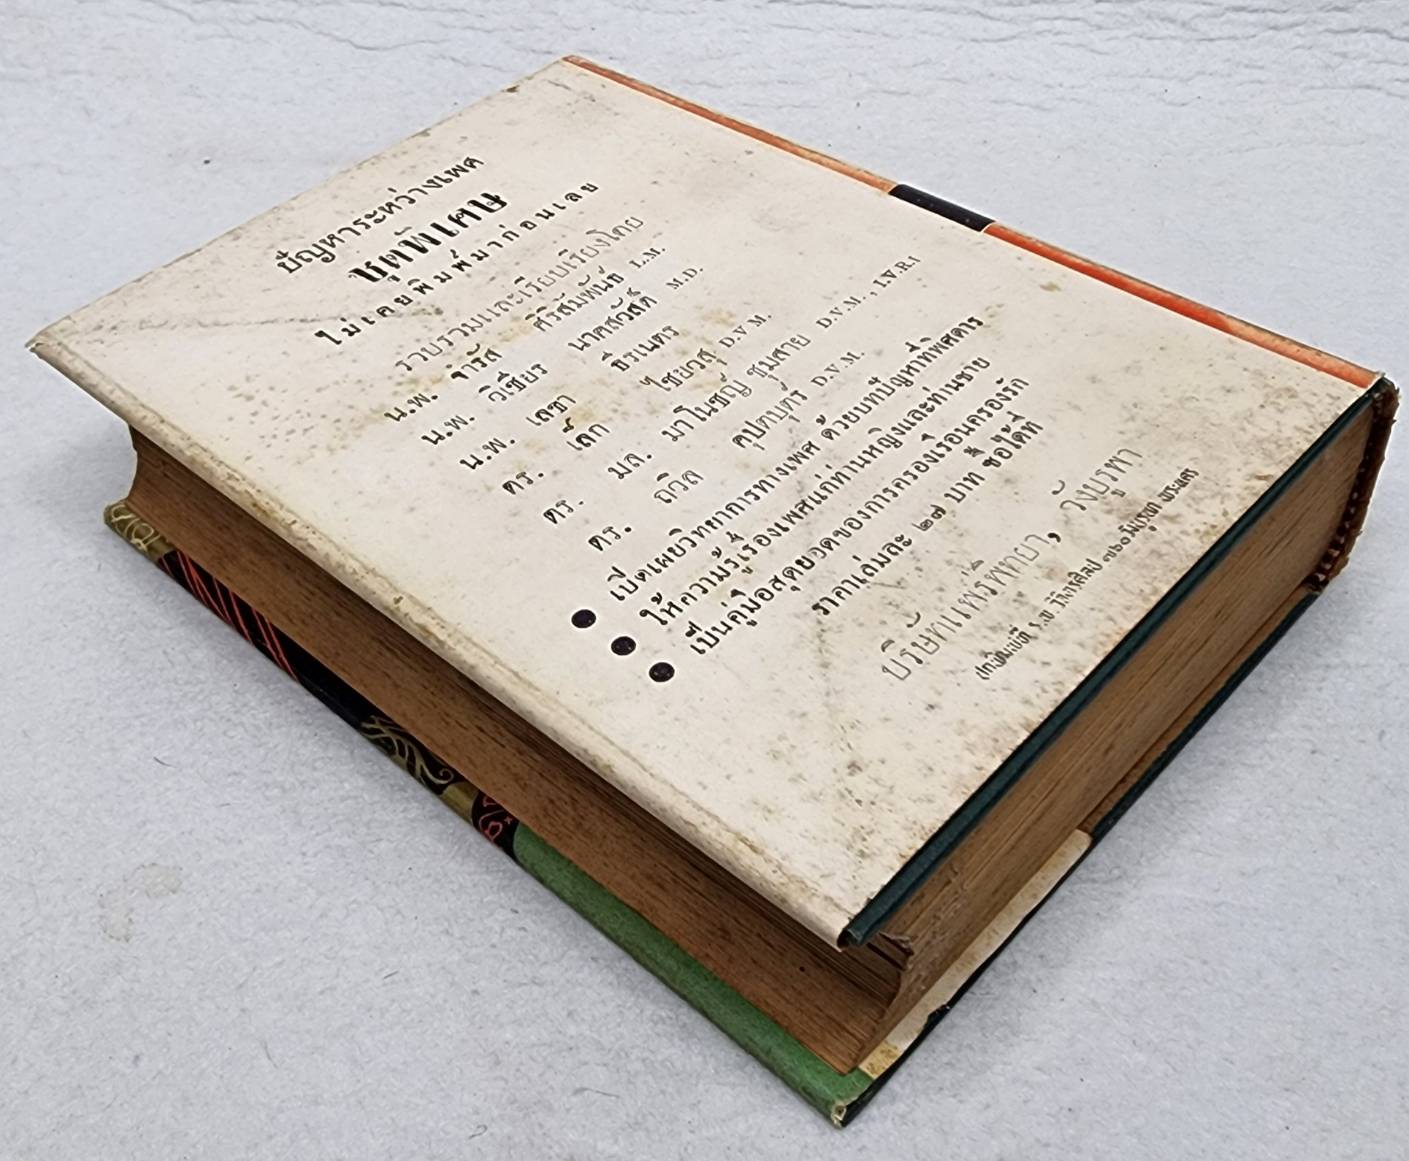 ปัญหาระหว่างเพศ
ชุดพิเศษ
ไม่เคยพิมพ์มาก่อนเลย
รวบรวมและเรียบเรียงโดย
น.พ. จารัส ศิริสัมพันธ์ L.M.
น.พ. วิเชียร นาคสวัสดิ์ M.D.
น.พ. เลขา ธีรเนตร
ดร. เล็ก ไชยวสุ D.V.M.
ดร. มล. มาโนชญ์ ชุมสาย D.V.M., I.V.R.I
ดร. ถวิล คุปตบุตร์ D.V.M.
● เปิดเผยวิทยาการทางเพศ ด้วยบทปัญหาที่พิสดาร
● ให้ความรู้เรื่องเพศแก่ท่านหญิงและท่านชาย
● เป็นคู่มือสุดยอดของการครองเรือนครองรัก
ราคาเล่มละ ๒๗ บาท ซื้อได้ที่
บริษัทแพร่พิทยา, วังบูรพา